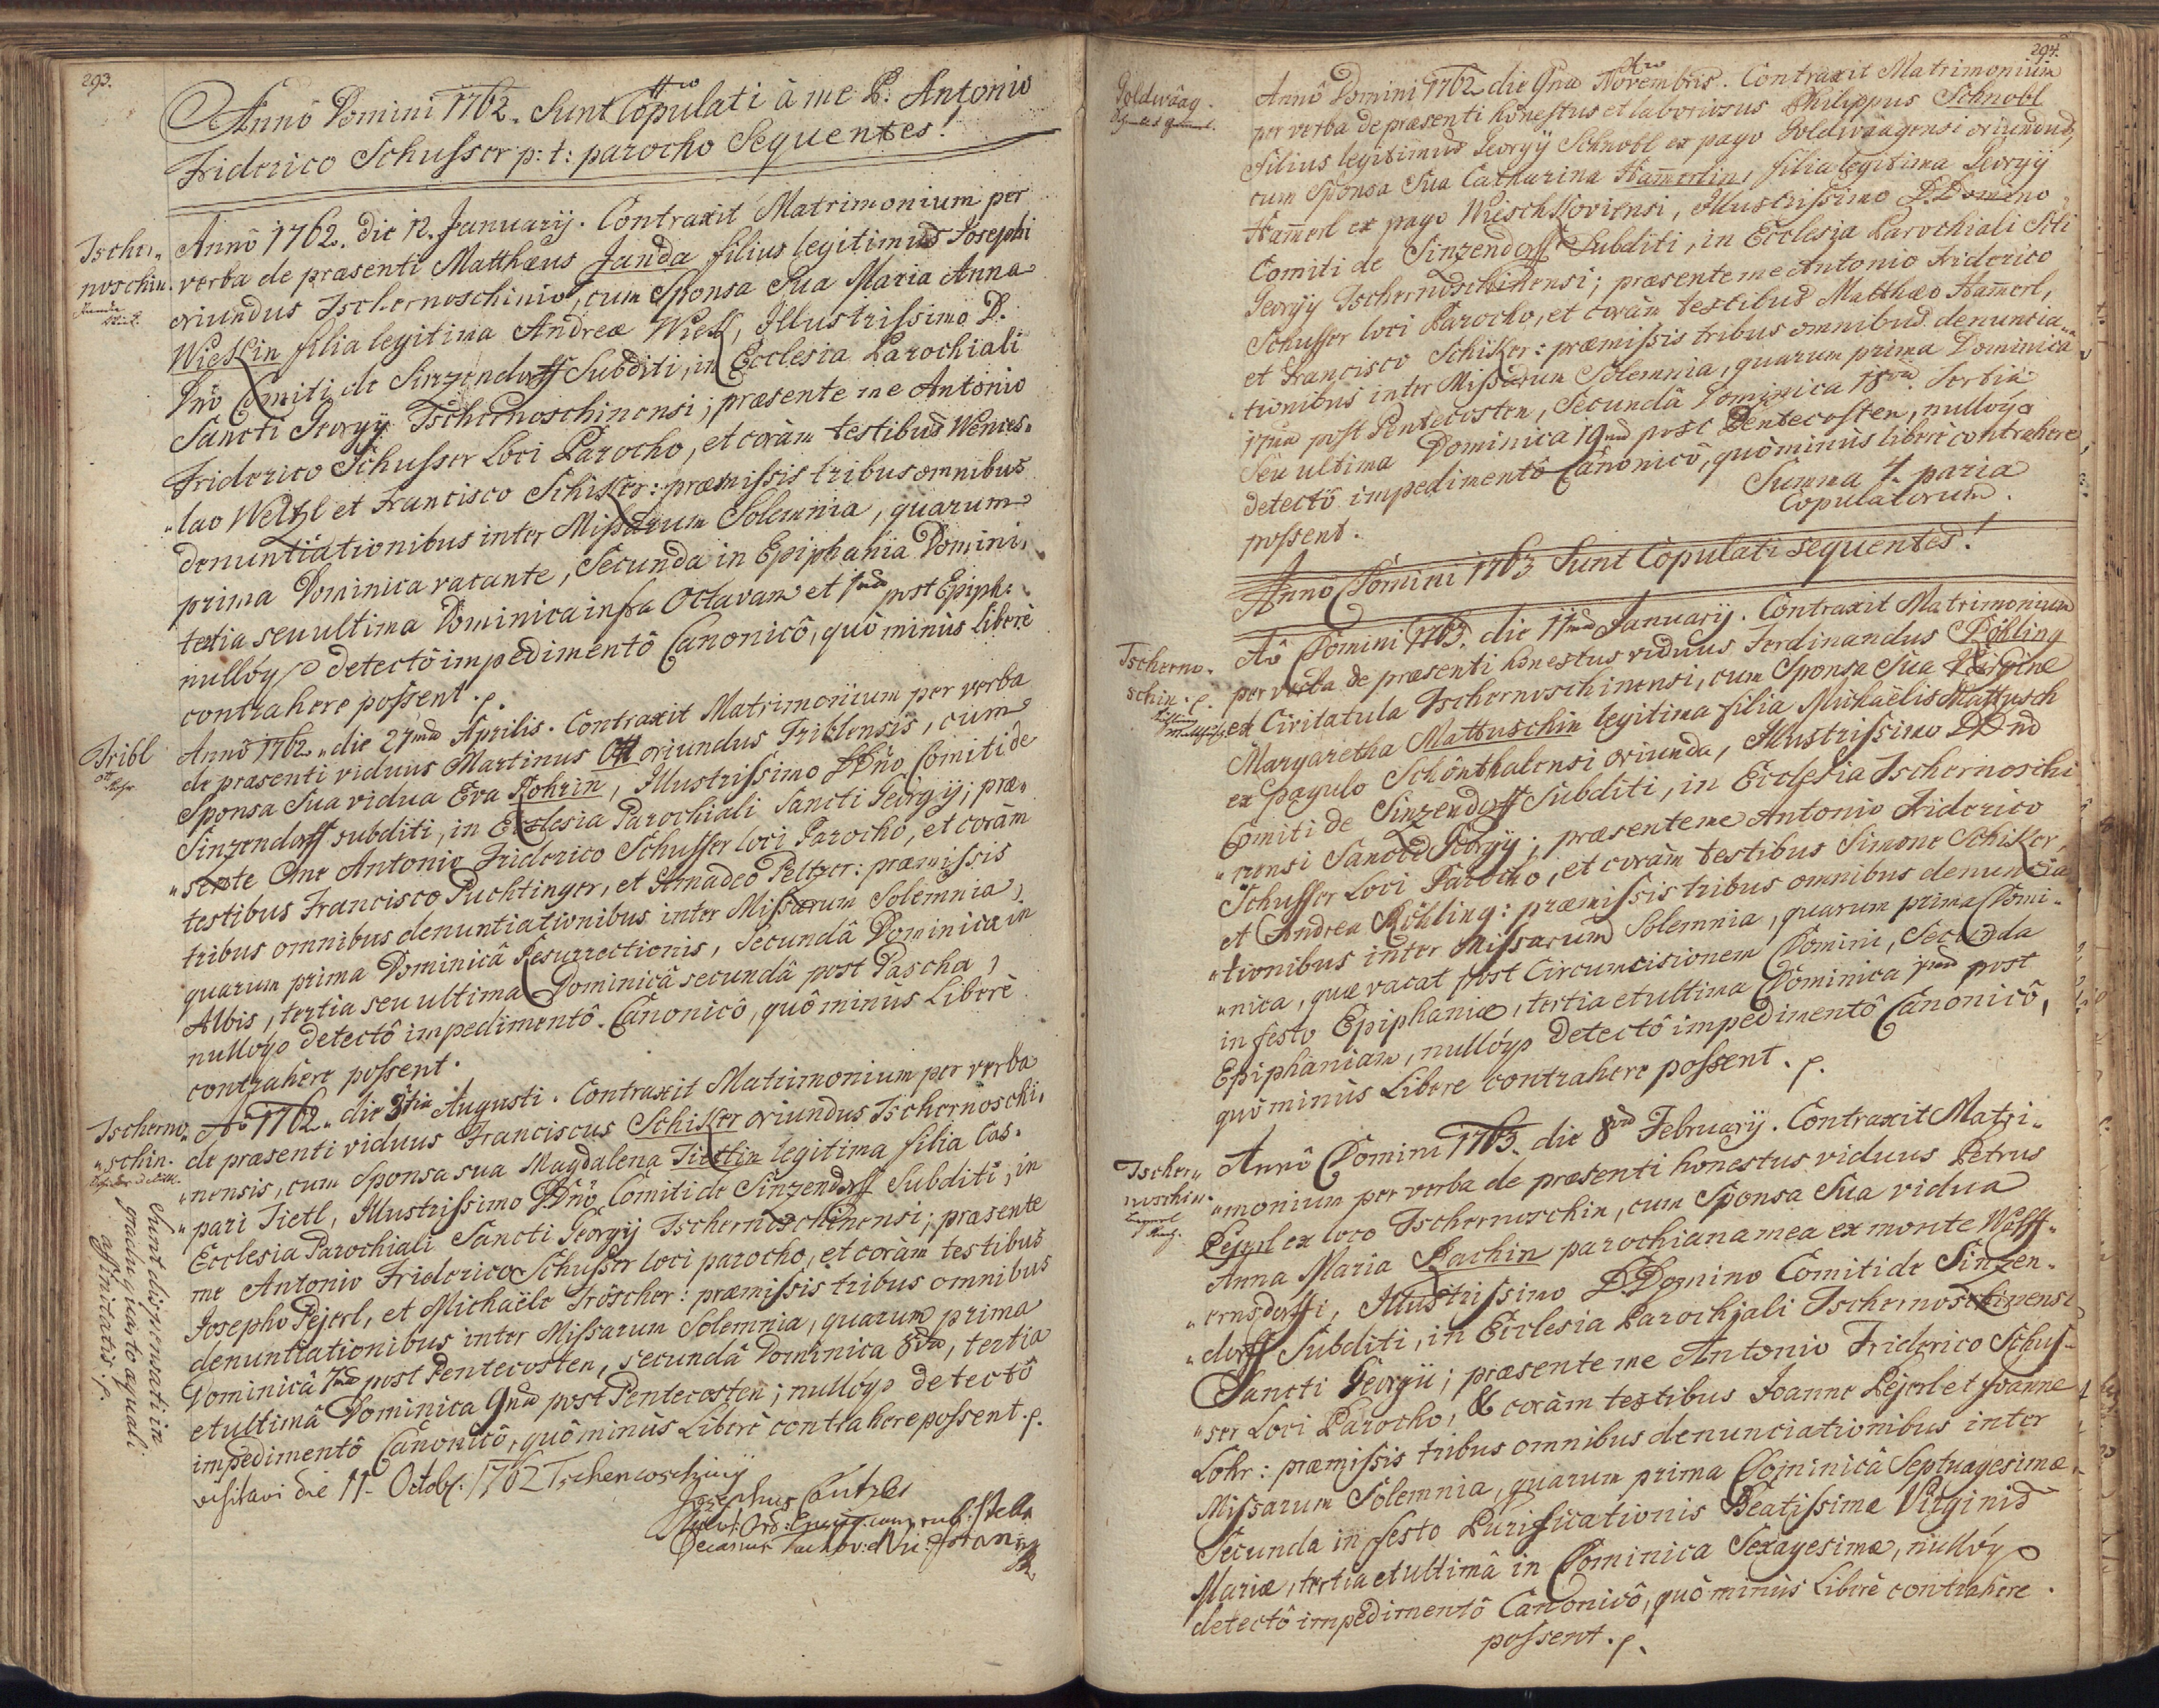 293.
Annô Domini 1762. Sunt Copulati à me P. Antonio
Friderico Schusser p: t: parocho Sequentes.
Tscher„
noschin.
Annô 1762. die 12. Januarij. Contraxit Matrimonium per
verba de præsenti Matthæus Janda filius legitimus Josephi
oriundus Tschernoschinio, cum Sponsa Sua Maria Anna
Wießlin filia legitima Andreæ Wießl, Illustrissimo D.
Dnô Comiti de Sinzendorff Subditi, in Ecclesia Parochiali
Sancti Georgij Tschernoschinensi; præsente me Antonio
Friderico Schusser Loci Parocho, et coràm testibus Wences„
„lao Weltzl et Francisco Schiker: præmissis tribus omnibus
denuntiationibus inter Missarum Solemnia, quarum
prima Dominica vacante, Secunda in Epiphania Domini,
tertia seu ultima Dominica infra Octavam et 1ma post Epiph:
nullóq detectô impedimentô Canonicô, quô minùs liberè
contrahere possent.
Tribl
Ott
Rohr
Annô 1762 „ die 27ma Aprilis. Contraxit Matrimonium per verba
de præsenti viduus Martinus Ott oriundus Triblensis, cum
Sponsa Sua vidua Eva Rohrin, Illustrissimo DDnô Comiti de
Sinzendorff subditi, in Ecclesia Parochiali Sancti Georgij; præ„
„sente me Antonio Friderico Schusser loci Parocho, et coràm
testibus Francisco Puchtinger, et Amadeo Peltzer: præmissis
tribus omnibus denuntiationibus inter Missarum Solemnia,
quarum prima Dominicâ Resurrectionis, Secundâ Dominica in
Albis, tertia seu ultima Dominicâ secundâ post Pascha,
nullóq detectô impedimentô Canonicô, quô minùs Liberè
contrahere possent.
Tscherno„
„schin.
Aô 1762 „ die 3tia Augusti. Contraxit Matrimonium per verba
de præsenti viduus Franciscus Schiker oriundus Tschernoschi„
„nensis, cum Sponsa sua Magdalena Tietlin legitima filia Cas„
„pari Tietl, Illustrissimo DDnô Comiti de Sinzendorff Subditi, in
Ecclesia Parochiali Sancti Georgij Tschernoschinensi; præsente
me Antonio Friderico Schusser loci parocho, et coràm testibus
Josepho Pejerl, et Michaële Tröscher: præmissis tribus omnibus
denuntiationibus inter Missarum Solemnia, quarum prima
Dominicâ 7ma post Pentecosten, secundâ Dominica 8va, tertia
et ultimâ Dominica 9na post Pentecosten; nullóq detectô
impedimentô Canonicô, quô minùs Liberè contrahere possent.
Sunt dispensati in
gradu quarto æquali
affinitatis.
visitavi die 11 Octob: 1762 Tschernoschinij
Josephus
294.
Goldwaag.
Annô Domini 1762 die 9na Novembris. Contraxit Matrimonium
per verba de præsenti honestus et laboriosus Philippus Schnobl
filius legitimus Georgij Schnobl ex pago Goldwaagensi oriundus,
cum Sponsa Sua Catharina Ham̄erlin, filia legitima Georgij
Ham̄erl ex pago Wieschkoviensi, Illustrissimo D. Domino
Comiti de Sinzendorff Subditi, in Ecclesia Parochiali Sti
Georgij Tschernoschinensi; præsente me Antonio Friderico
Schusser loci Parocho, et coràm testibus Matthæo Ham̄erl,
et Francisco Schiker: præmissis tribus omnibus denuncia„
„tionibus inter Missarum Solemnia, quarum prima Dominica
17ma post Pentecosten, Secundâ Dominica 18va. Tertia
seu ultima Dominica 19na post Pentecosten, nullóq
detectô impedimentô Canonicô, quô minùs liberè contrahere
possent.
Summa 4 paria
Copulatorum.
Annô Domini 1763 Sunt Copulati sequentes!
Tscherno„
schin.
Aô Domini 1763. die 11ma Januarij. Contraxit Matrimonium
per verba de præsenti honestus viduus Ferdinandus Röhling
ex Civitatula Tschernoschinensi, cum Sponsa Sua Virgine
Margaretha Mattuschin legitima filia Michaëlis Mattusch
ex pagulo Schönthalensi oriunda, Illustrissimo DDnô
Comiti de Sinzendorff Subditi, in Ecclesia Tschernoschi
„nensi Sancti Georgij; præsente me Antonio Friderico
Schusser Loci Parocho, et coràm testibus Simone Schiker,
et Andrea Röhling: præmissis tribus omnibus denuncia
„tionibus inter Missarum Solemnia, quarum prima Domi„
„nica, quæ vacat post Circumcisionem Domini, Secunda
in festo Epiphaniæ, tertia et ultima Dominica 1ma post
Epiphaniam, nullóq detectô impedimentô Canonicô,
quô minùs Libere contrahere possent.
Tscher„
noschin.
Annô Domini 1763. die 8va February. Contraxit Matri„
„monium per verba de præsenti honestus viduus Petrus
Pejerl ex loco Tschernoschin, cum Sponsa Sua vidua
Anna Maria Rachin parochiana mea ex monte Wolff„
„ernsdorffi, Illustrissimo D. Domino Comiti de Sinzen„
„dorff Subditi, in Ecclesia Parochiali Tschernoschinensi
Sancti Georgii; præsente me Antonio Friderico Schus„
„ser Loci Parocho, & coràm testibus Joanne Pejerl et Joanne
Löhr: præmissis tribus omnibus denunciationibus inter
Missarum Solemnia, quarum prima Dominicâ Septuagesimæ,
Secunda in festo Purificationis Beatissimæ Virginis
Mariæ, tertia et ultimâ in Dominica Sexagesimæ, nullóq
detectô impedimentô Canonicô, quô minùs Liberè contrahere
possent.